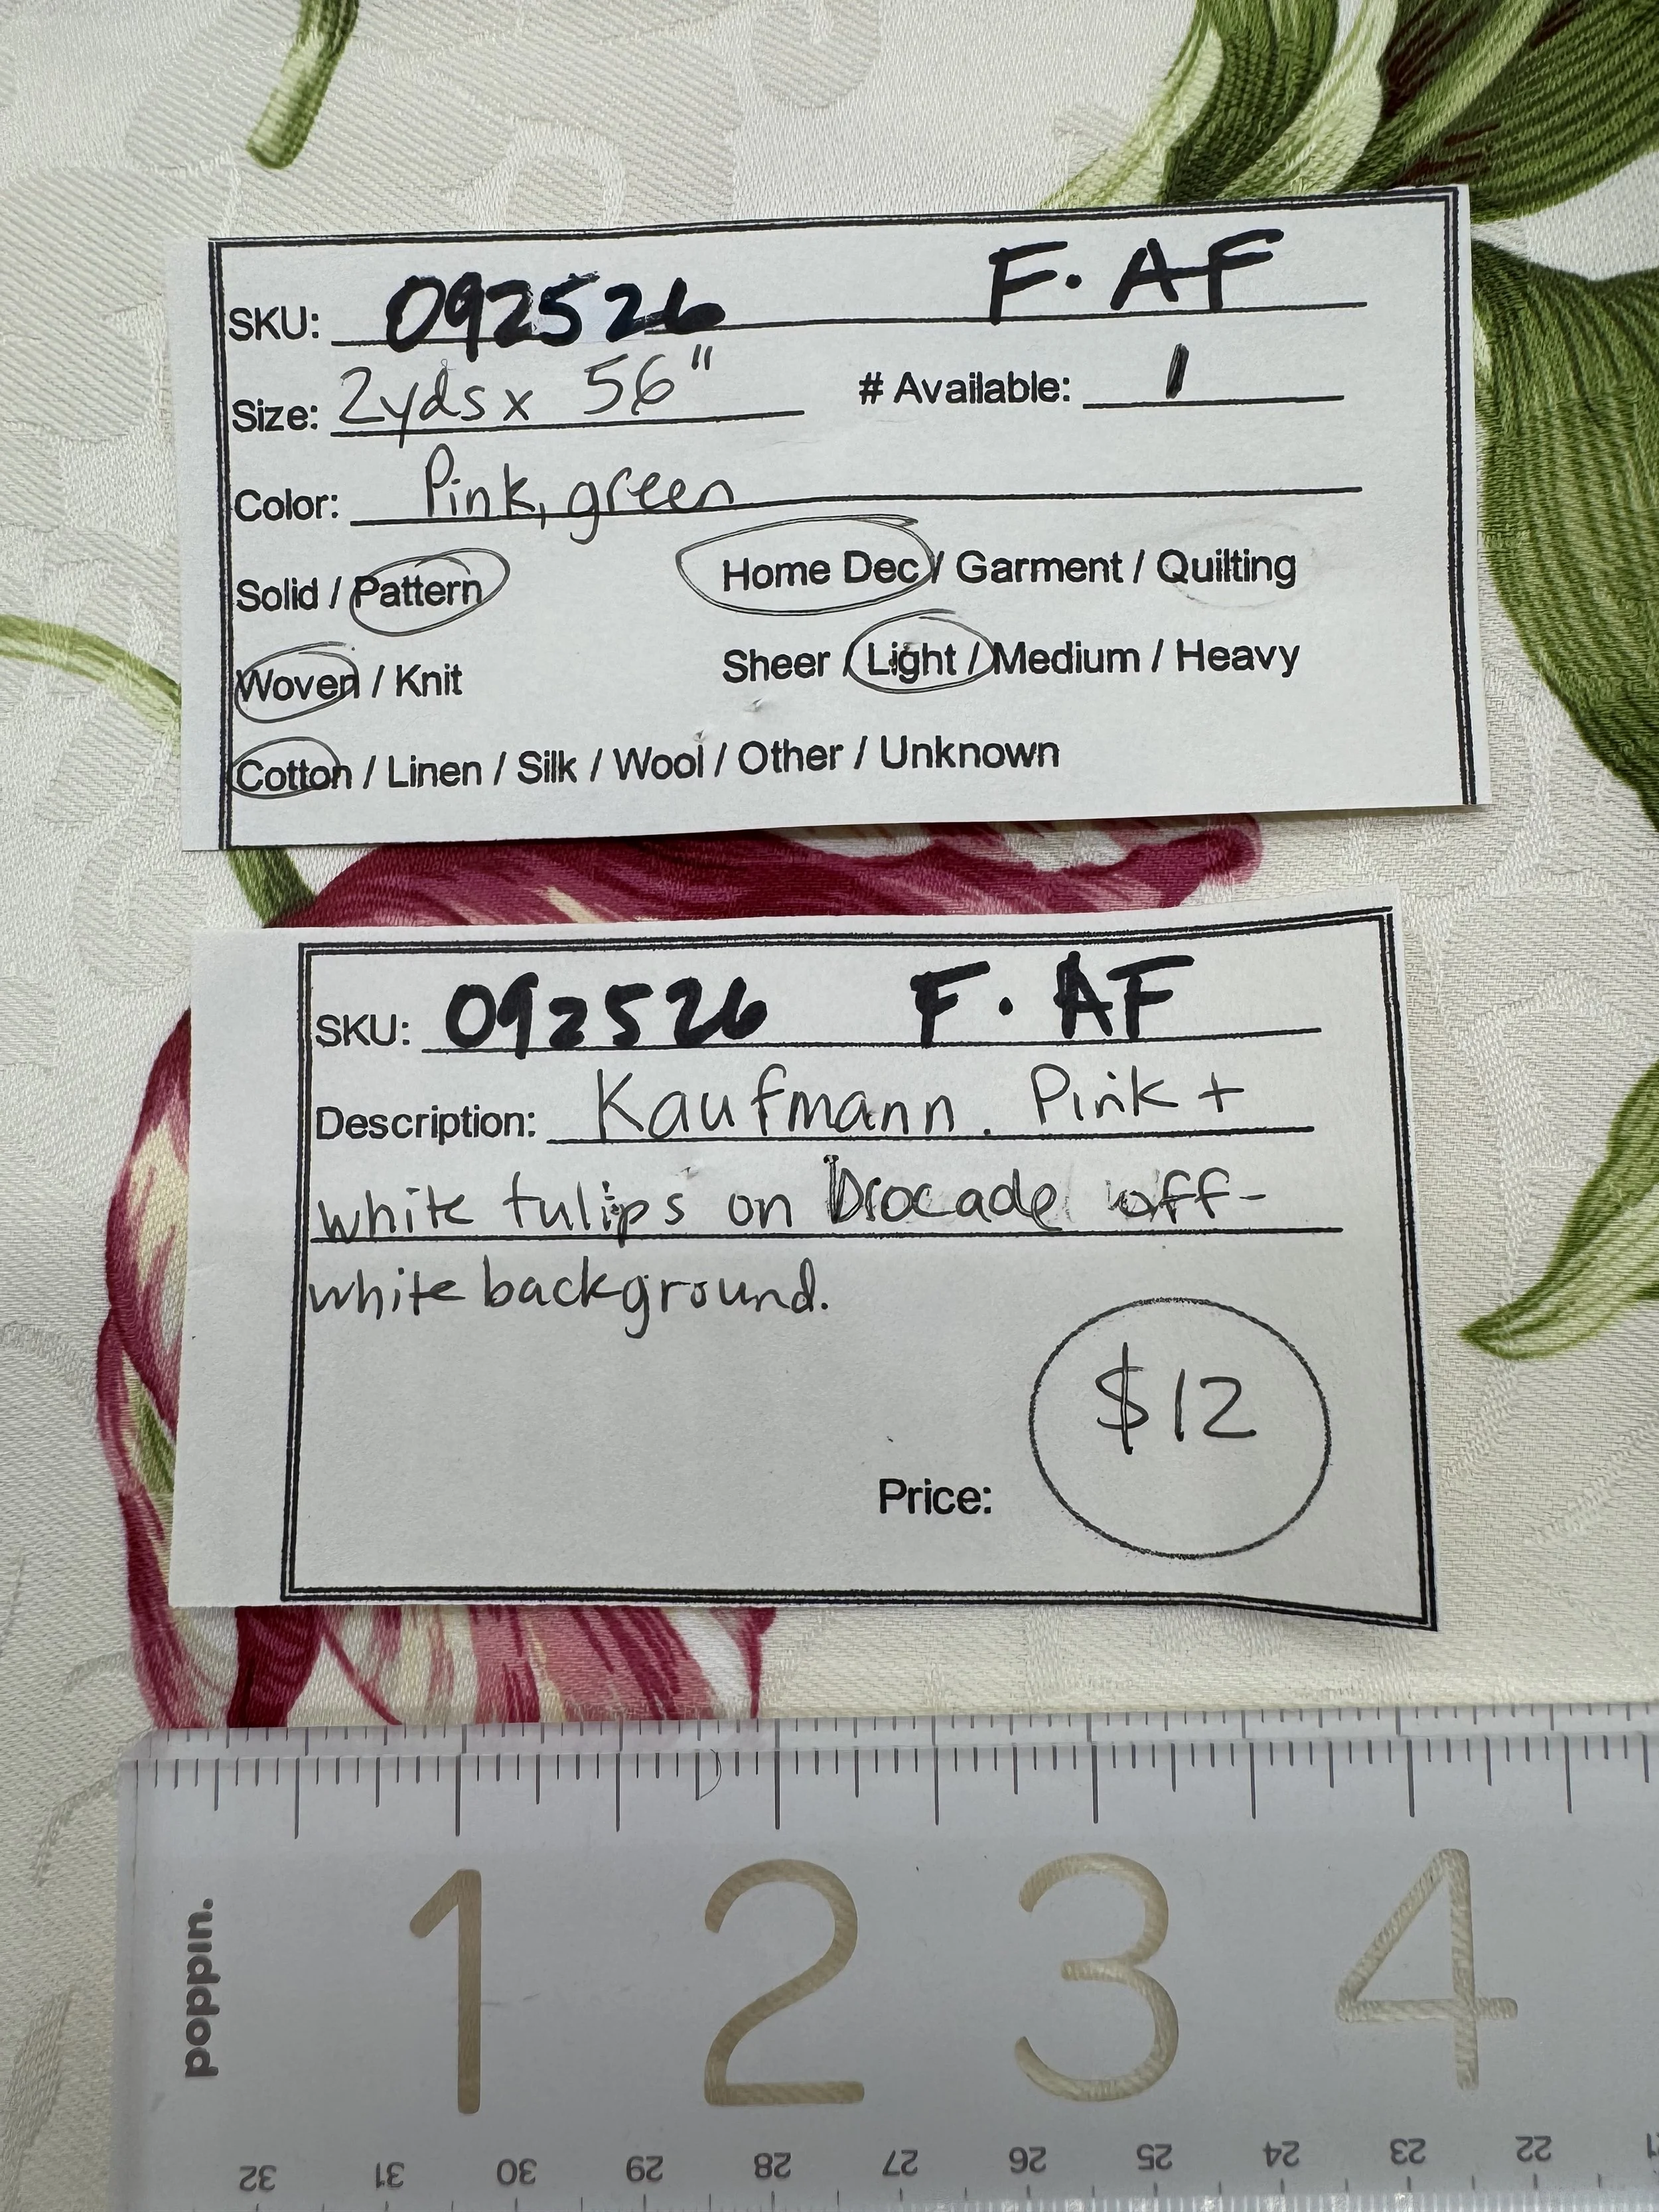 SKU: 092526 F. AF
Size: 2yds x 56" # Available: 1
Color: Pink, green
Solid / Pattern Home Dec / Garment / Quilting
Woven / Knit Sheer / Light / Medium / Heavy
Cotton / Linen / Silk / Wool / Other / Unknown
SKU: 092526 F. AF
Description: Kaufmann. Pink +
white tulips on Brocade off-
white background.
$12
Price:
poppin.
1 2 3 4
32 31 30 29 28 27 26 25 24 23 22